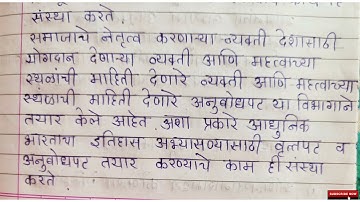 संस्था करते.
समाजाचे नेतृत्व करणाऱ्या व्यक्ती देशासाठी
योगदान देणाऱ्या व्यक्ती आणि महत्वाच्या
स्थळांची माहिती देणारे व्यक्ती आणि महत्वाच्या
स्थळांची माहिती देणारे अनुबोधपट या विभागाने
तयार केले आहेत. अशा प्रकारे आधुनिक
भारताचा इतिहास अभ्यासण्यासाठी वृत्तपट व
अनुबोधपट तयार करण्याचे काम ही संस्था
करते.